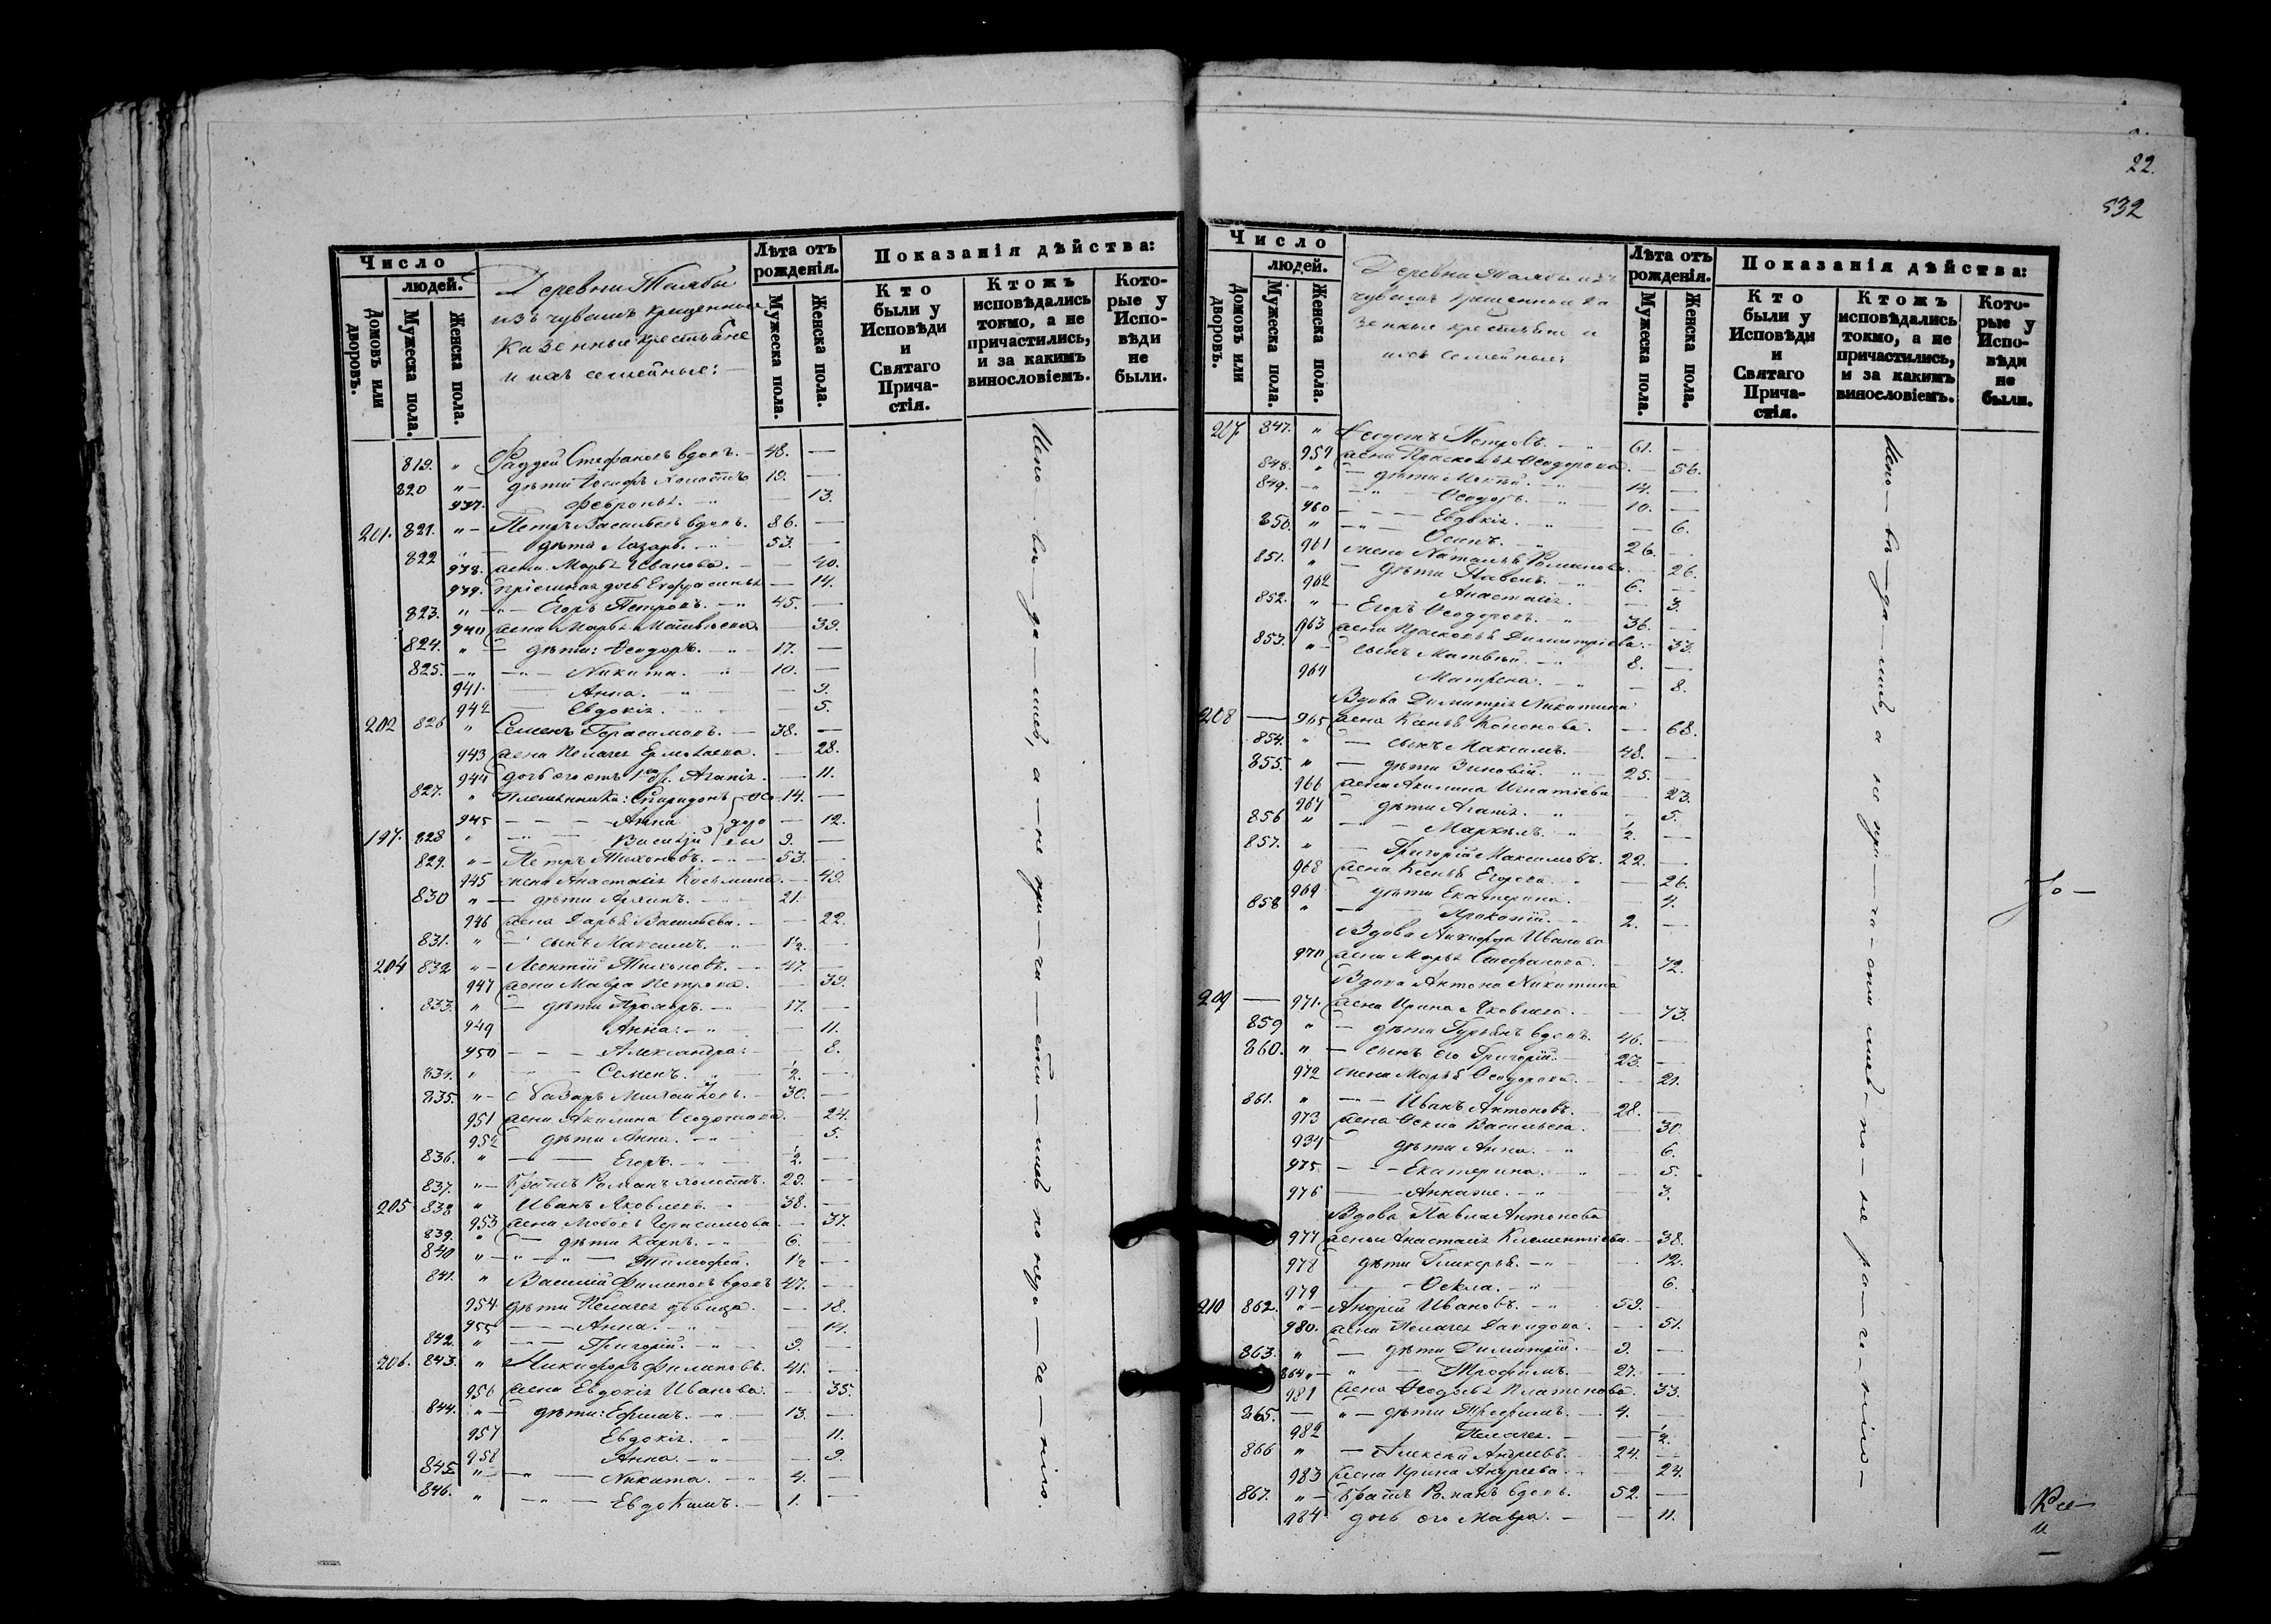 22.
532
Число
людей.
Домовъ или дворовъ.
Мужеска пола.
Женска пола.
Деревни Таябы
изъ чувашъ крещенные
казенные крестьяне
и ихъ семейные:
Лѣта отъ рожденія.
Мужеска пола.
Женска пола.
Показанія дѣйства:
Кто были у Исповѣди и Святаго Причастія.
Ктожъ исповѣдались токмо, а не причастились, и за какимъ винословіемъ.
Которые у Исповѣди не были.
819. " Фаддей Стефановъ вдовъ. 48. —
820 " дѣти Іосифъ холостъ 19. —
937. Февронья. — 13.
201. 821. " Петръ Васильевъ вдовъ. 86. —
822 " дѣти Лазарь. 53. —
938. жена Марья Иванова. — 40.
939. пріемная дочь Евфросинья — 14.
823. " Егоръ Петровъ. 45. —
940 жена Марья Матвѣева. — 39.
824. " дѣти: Ѳеодоръ. 17. —
825. " Никита. 10. —
941. Анна. — 9.
942 Евдокія. — 5.
202 826 " Семенъ Герасимовъ. 38. —
943 жена Пелагея Ермолаева. — 28.
944 дочь его отъ 1го бр. Агапія. — 11.
827. " Племянники: Спиридонъ 14. —
945 Анна — 12.
197. 828 " Василій 9. —
829. " Петръ Тихоновъ. 53. —
945 жена Анастасія Косьмина. — 49.
830 " дѣти 21. —
946 жена Дарья Васильева. — 22.
831. " сынъ Максимъ. 1½. —
204 832 " Леонтій Тихоновъ. 47. —
947 жена Мавра Петрова. — 39.
833. " дѣти 17. —
949 Анна. — 11.
950 Александра: — 8.
834. " Семенъ. ½. —
835. " Назаръ Михайловъ. 30. —
951 жена Акилина Ѳедотова. — 24.
952 дѣти Анна. — 5.
836. " Егоръ. ½. —
837. " братъ Романъ холостъ. 23. —
205 838 " Иванъ Яковлевъ. 38. —
953 жена Любовь Герасимова. — 37.
839. " дѣти Карпъ. 6. —
840 " Тимофей. 1½ —
841. " Василій Филиповъ вдовъ 47. —
954. дѣти Пелагея дѣвица. — 18.
955 Анна. — 14.
842. " Григорій. 9. —
206. 843. " Никифоръ Филиповъ. 41. —
956 жена Евдокія Иванова. — 35.
844. " дѣти: Ефимъ. 13. —
957 Евдокія. — 11.
958 Анна. — 9.
845 " Никита. 4. —
846. " Евдокимъ. 1. —
Испо — вѣ — да — лись, а — не при — ча — сти — лись по нера — че — нію.
Число
людей.
Домовъ или дворовъ.
Мужеска пола.
Женска пола.
Деревни Таябы изъ
чувашъ крещенные ка-
зенные крестьяне и
ихъ семейные:
Лѣта отъ рожденія.
Мужеска пола.
Женска пола.
Показанія дѣйства:
Кто были у Исповѣди и Святаго Причастія.
Ктожъ исповѣдались токмо, а не причастились, и за какимъ винословіемъ.
Которые у Исповѣди не были.
207 847. " Ѳедотъ Петровъ. 61. —
959 жена Прасковья Ѳеодорова. — 56.
848. " дѣти 14. —
849. Ѳеодоръ. 10. —
960 Евдокія. — 6.
850. " Осипъ. 26. —
961 жена Наталья Романова. — 26.
851. " дѣти Павелъ. 6. —
962 Анастасія. — 3.
852. " Егоръ Ѳеодоровъ. 36. —
963 жена Прасковья Димитріева. — 33.
853. " сынъ Матвѣй. 8. —
964 Матрена. — 8.
Вдова Димитрія Никитина
208 — 965 жена Ксенья Кононова. — 68.
854. " сынъ Максимъ. 48. —
855. " дѣти Зиновій. 25. —
966 жена Акилина Игнатіева — 23.
967 дѣти Агапія. — 5.
856 " Маркелъ. ½. —
857. " Григорій Максимовъ. 22. —
968 жена Ксенья Егорова. — 26.
969 дѣти Екатерина. — 4.
858 " Прокопій. 2. —
Вдова Никифора Иванова
970 жена Марья Стефанова. — 72.
Вдова Антона Никитина
209 — 971. жена Ирина Яковлева. — 73.
859 " дѣти Гурьянъ вдовъ. 46. —
860. " сынъ его Григорій. 23. —
972 жена Марья Ѳеодорова. — 21.
861. " Иванъ Антоновъ. 28. —
973 жена Ѳекла Васильева. — 30.
934 дѣти Анна. — 6.
975 Екатерина. — 5.
976 Аннаже. — 3.
Вдова Павла Антонова
977 жена Анастасія Климентіева. — 38.
978 дѣти Гликерья. — 12.
979 Ѳекла. — 6.
210 862. " Андрей Ивановъ. 59. —
980. жена Пелагея Давидова. — 51.
863. " дѣти Димитрій. 9. —
864 " Трофимъ. 27. —
981 жена Ѳеодосья Платонова. 33.
865. " дѣти 4. —
982 Пелагея. — ½.
866 " Алексѣй Андреевъ. 24. —
983 жена Ирина Андреева. — 24.
867. " братъ Романъ вдовъ. 52. —
984 дочь его Мавра. — 11.
Испо — вѣ — да — лись, а не при — ча — сти лись — по — не ра — че — нію —